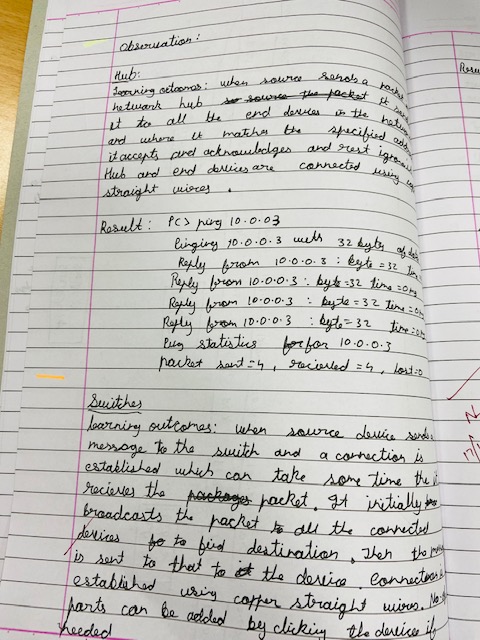 Observation:
Hub:
Learning outcomes: when source sends a packet
network hub so source the packet it sends
it to all the end devices in the
and where it matches the specified
it accepts and acknowledges and rest
Hub and end devices are connected using
straight wires.
Result: PC> ping 10.0.03
Pinging 10.0.0.3 with 32 bytes of
Reply from 10.0.0.3 : byte = 32
Reply from 10.0.0.3 : byte=32 time=0
Reply from 10.0.0.3 : byte=32 time=
Reply from 10.0.0.3 : byte=32 time=
Ping statistics for for 10.0.0.3
packet sent=4, recieved=4, lost=0
Switches
learning outcomes: when source device sends
message to the switch and a connection is
established which can take some time the
recieves the packages packet. It initially
broadcasts the packet to all the connected
devices to to find destination. Then the
is sent to that to the device. Connection is
established using copper straight wires.
parts can be added by clicking the device if
needed
Resu